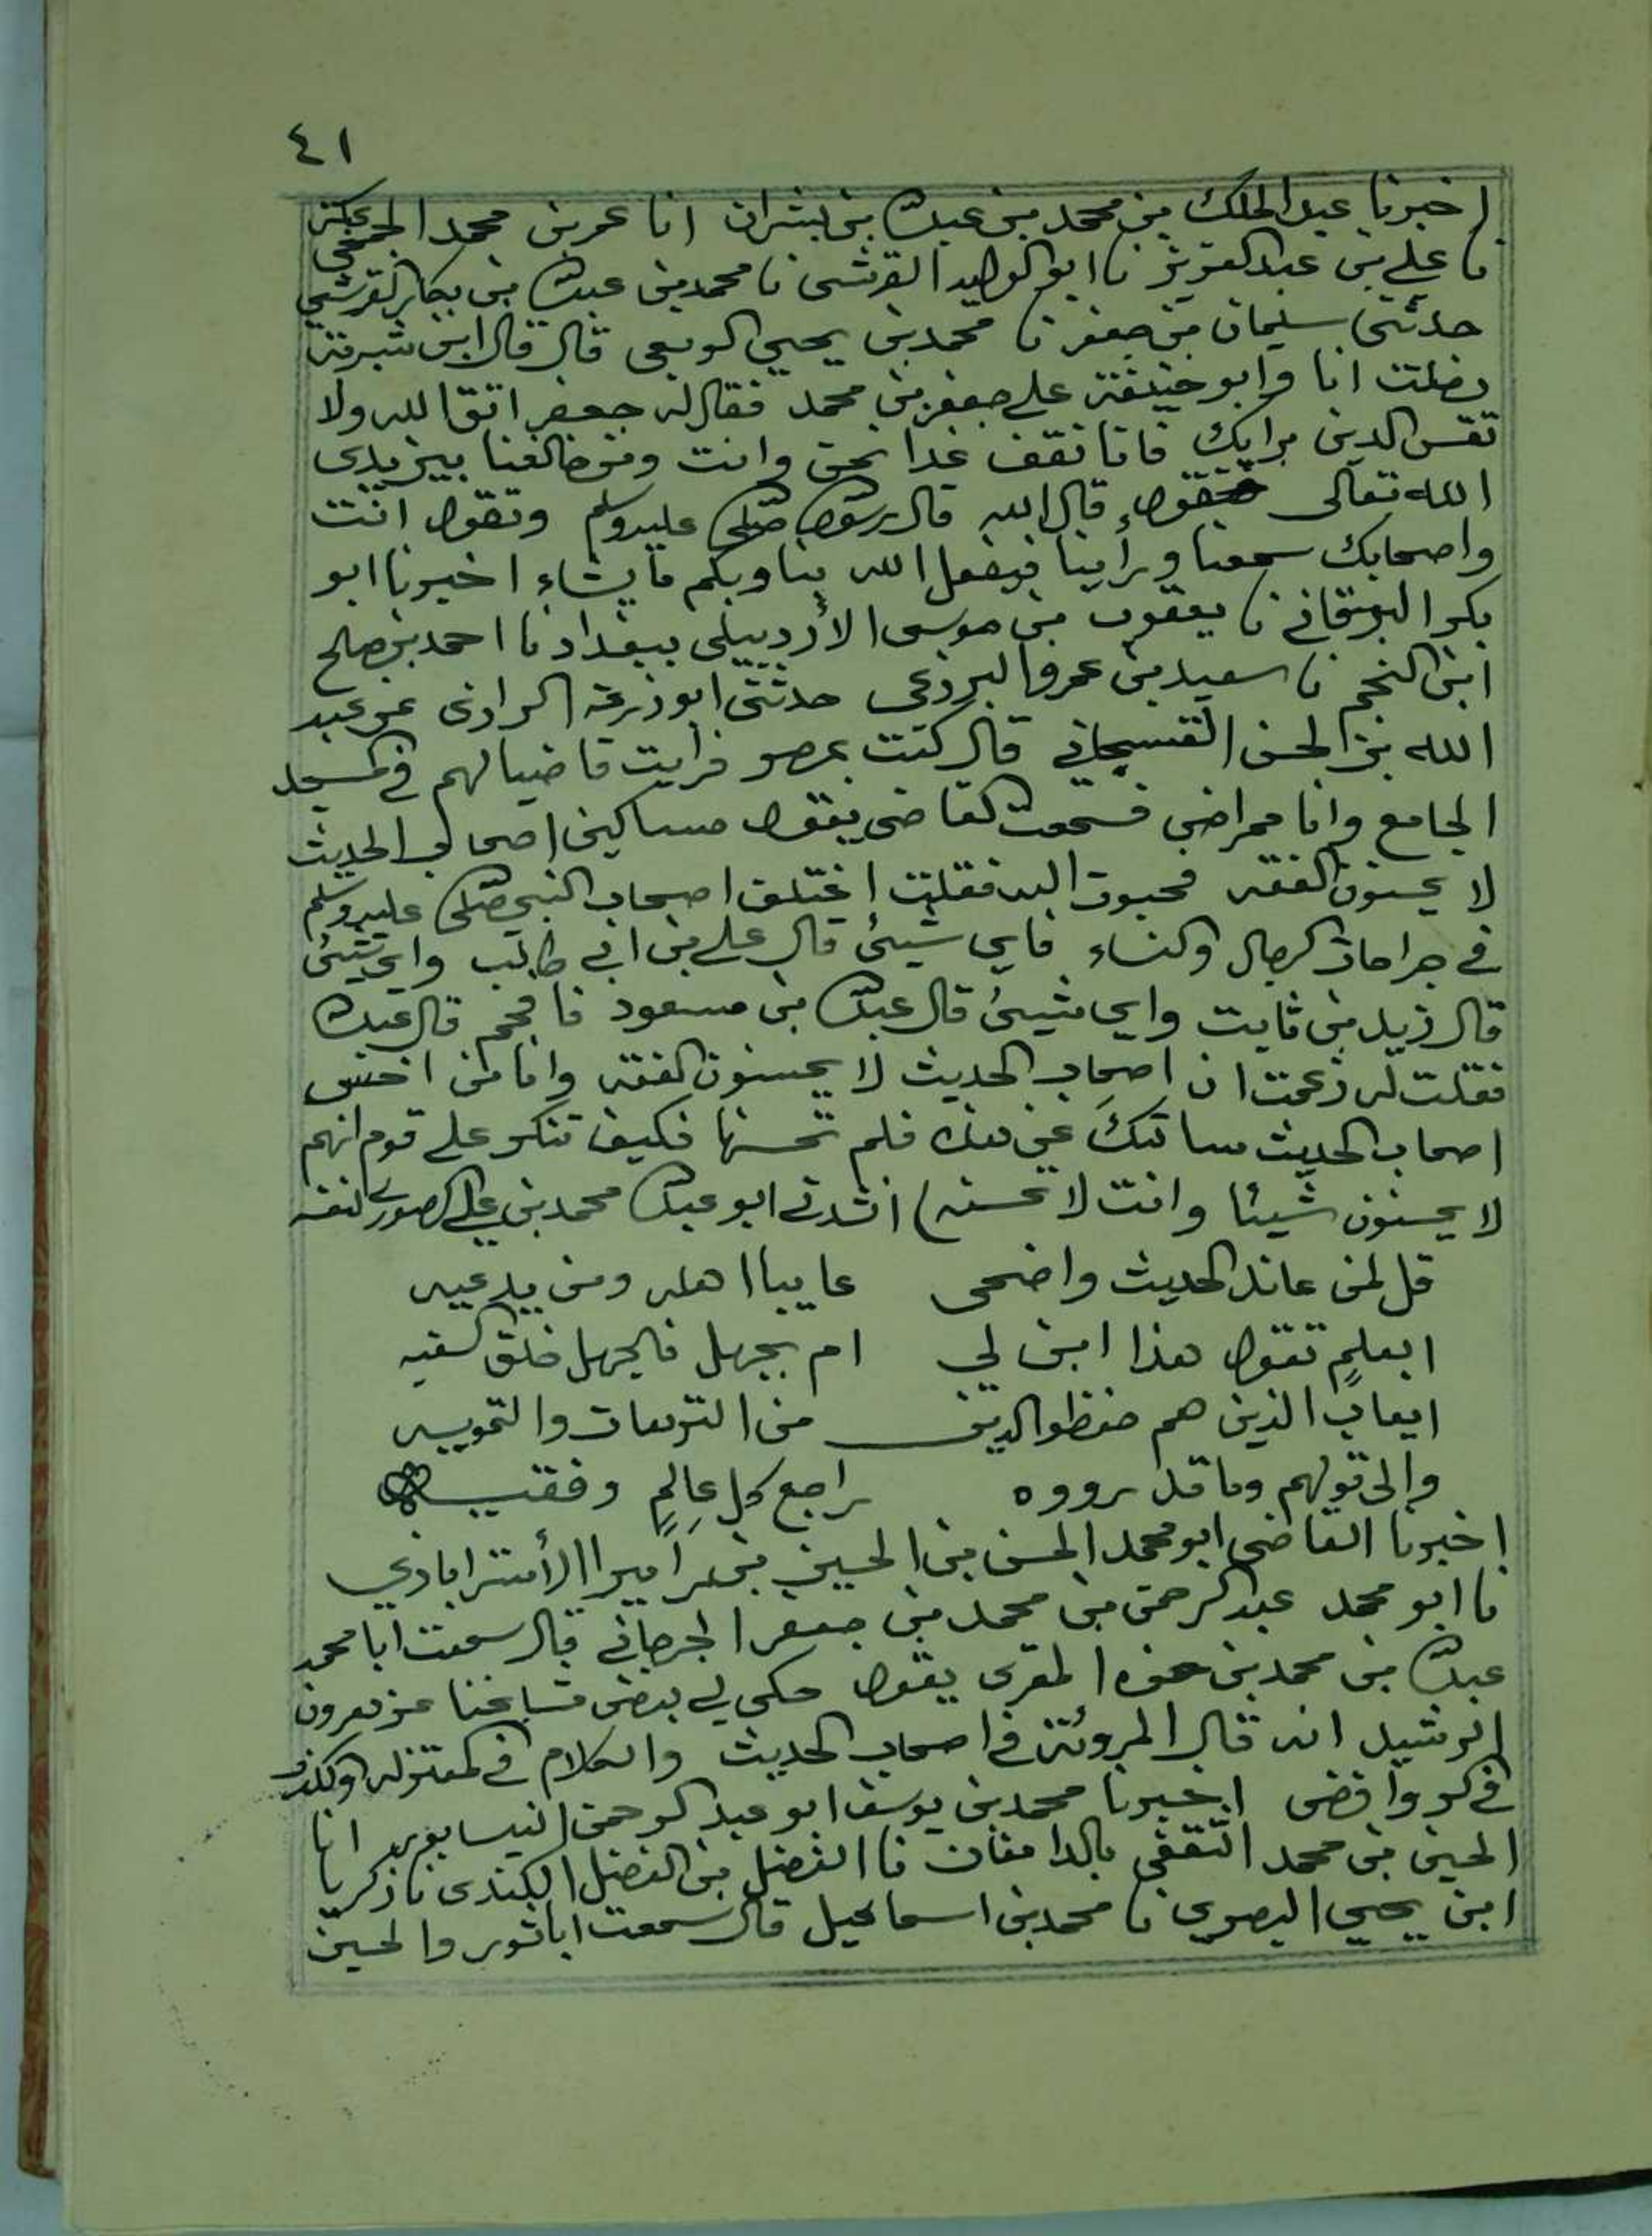 ٤١
اخبرنا عبد الملك بن محمد بن عبدالله بن بشران انا عمر بن محمد الجمحي بمكة
نا علي بن عبد العزيز نا ابو الوليد القرشي نا محمد بن عبدالله بن بكار القرشي
حدثني سليمان بن جعفر نا محمد بن يحيي الربعي قال قال ابن شبرمة
دخلت انا وابو حنيفة علي جعفر بن محمد فقال له جعفر اتق الله ولا
تقس الدين برايك فانا نقف غدا نحن وانت ومن خالفنا بين يدي
الله تعالى فنقول قال الله قال رسول الله صلى الله عليه وسلم وتقول انت
واصحابك سمعنا ورأينا فيفعل الله بنا وبكم ما يشاء اخبرنا ابو
بكر البرقاني نا يعقوب بن موسى الأردبيلي ببغداد نا احمد بن صالح
ابن النجم نا سعيد بن عمرو البرذعي حدثني ابو زرعة الرازي عن عبد
الله بن الحسن الهسنجاني قال كنت بمصر فرايت قاضيا لهم في المسجد
الجامع وانا ممراض فسمعت القاضي يقول مساكين اصحاب الحديث
لا يحسنون الفقه فحبوت اليه فقلت اختلف اصحاب النبي صلى الله عليه وسلم
في جراحات الرجال والنساء فاي شيئ قال علي بن ابي طالب واي شيئ
قال زيد بن ثابت واي شيئ قال عبدالله بن مسعود فافحم قال عبدالله
فقلت له زعمت ان اصحاب الحديث لا يحسنون الفقه وانا من اخس
اصحاب الحديث سالتك عن هذه فلم تحسنها فكيف تنكر علي قوم انهم
لا يحسنون شيئا وانت لا تحسنه) انشدني ابو عبدالله محمد بن علي الصوري لنفسه
قل لمن عاند الحديث واضحى عايبا اهله ومن يدعيه
ابعلمٍ تقول هذا ابن لي ام بجهل فالجهل خلق السفيه
ايعاب الذين هم حفظوا الدين من الترهات والتمويه
وإلى قولهم وما قد رووه راجع كل عالِمٍ وفقيه
اخبرنا القاضي ابو محمد الحسن بن الحسين بن رامين الأستراباذي
نا ابو محمد عبد الرحمن بن محمد بن جعفر الجرجاني قال سمعت ابا محمد
عبدالله بن محمد بن حمزه المقري يقول حكي لي بعض مشايخنا عن هرون
الرشيد انه قال المروئة في اصحاب الحديث والكلام في المعتزله والكذب
في الروافض اخبرنا محمد بن يوسف ابو عبد الرحمن النيسابوري انا
الحسين بن محمد الثقفي بالدامغان نا الفضل بن الفضل الكندي نا زكريا
ابن يحيي البصري نا محمد بن اسماعيل قال سمعت اباثور والحسين